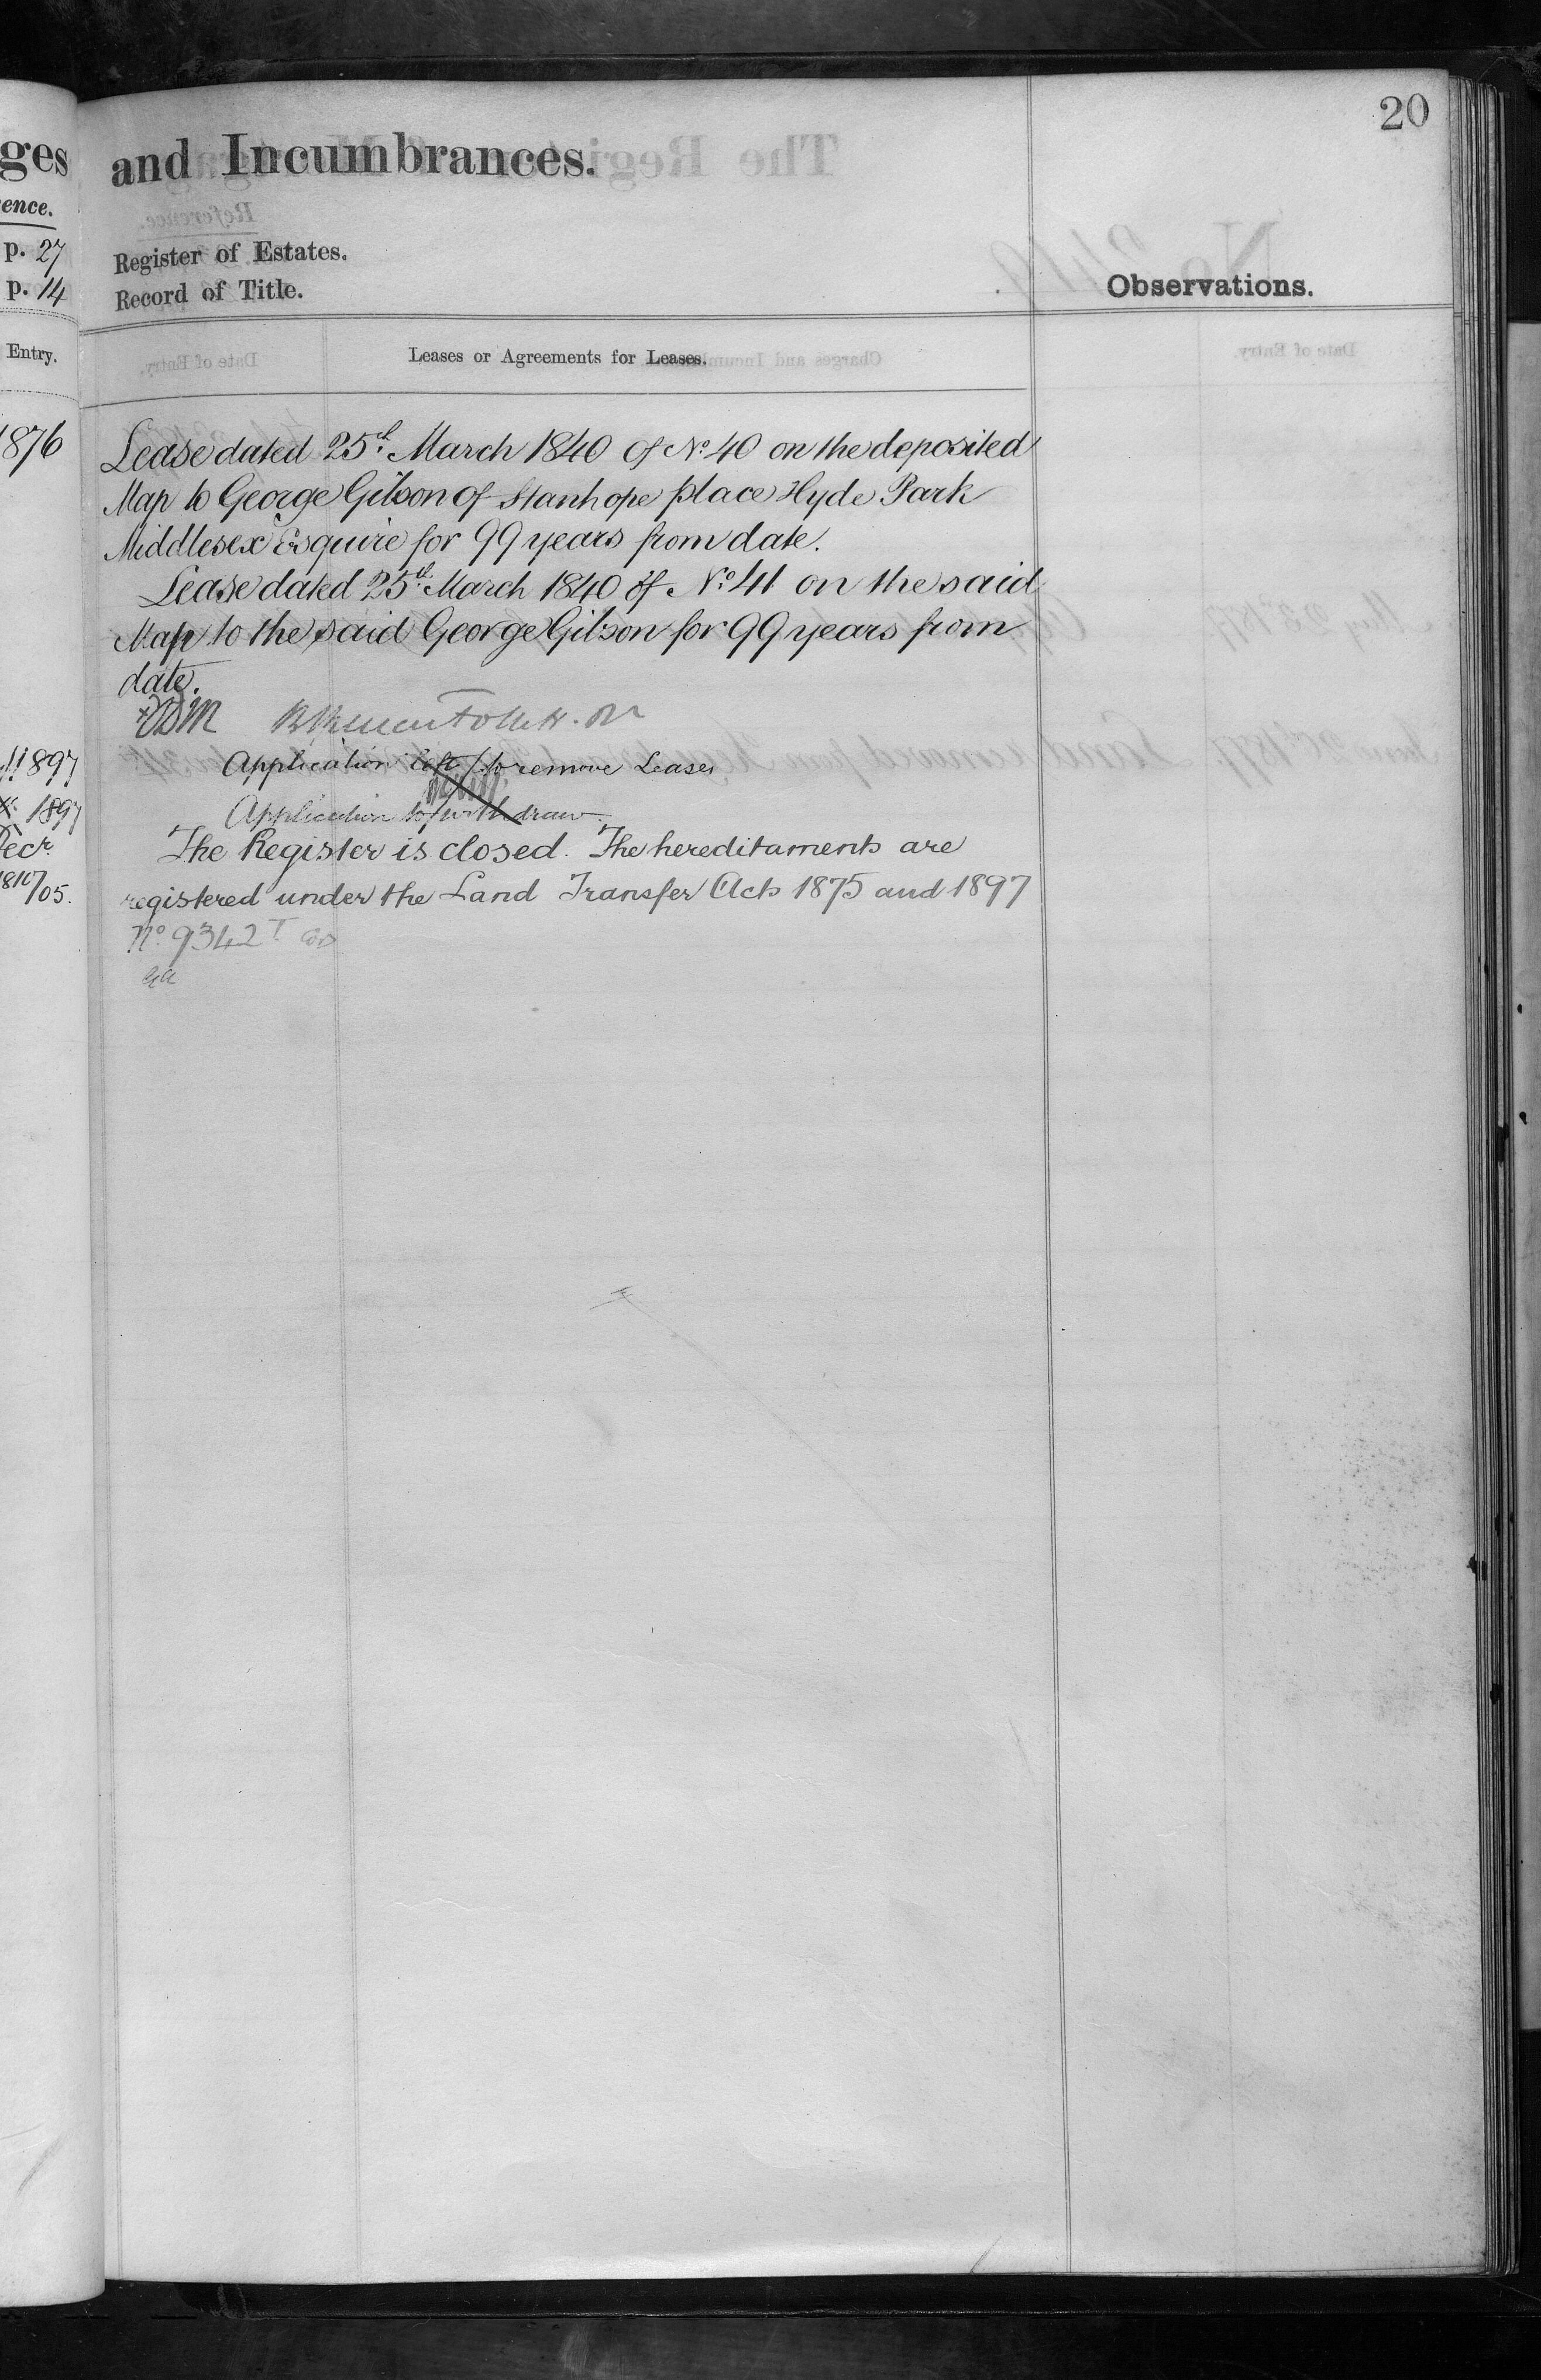 20
ges
and Incumbrances.
ence.
p. 27
Register of Estates.
p. 14
Record of Title.
Observations.
Entry.
Leases or Agreements for Leases.
1876
Lease dated 25th March 1840 of No. 40 on the deposited
Map to George Gibson of Stanhope place Hyde Park
Middlesex Esquire for 99 years from date.
Lease dated 25th March 1840 of No. 41 on the said
Map to the said George Gibson for 99 years from
date.
1897
Application left to remove Leases
1897
Application to withdraw
Decr.
The Register is closed. The hereditaments are
/05.
registered under the Land Transfer Acts 1875 and 1897
No. 9342